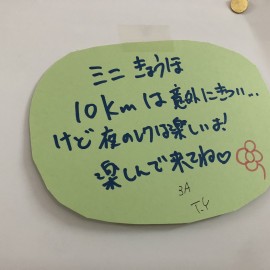 ミニ きょうほ
10kmは意外にきつい...
けど夜のリクは楽しいよ!
楽しんで来てね♡
3A
T.Y